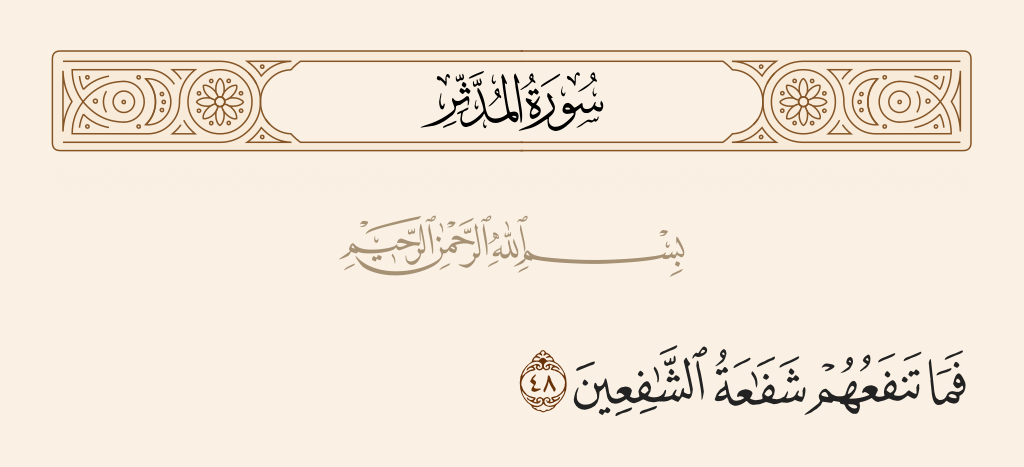 سُورَةُ المُدَّثِّرِ
بِسْمِ ٱللَّهِ ٱلرَّحْمَٰنِ ٱلرَّحِيمِ
فَمَا تَنفَعُهُمْ شَفَٰعَةُ ٱلشَّٰفِعِينَ ٤٨